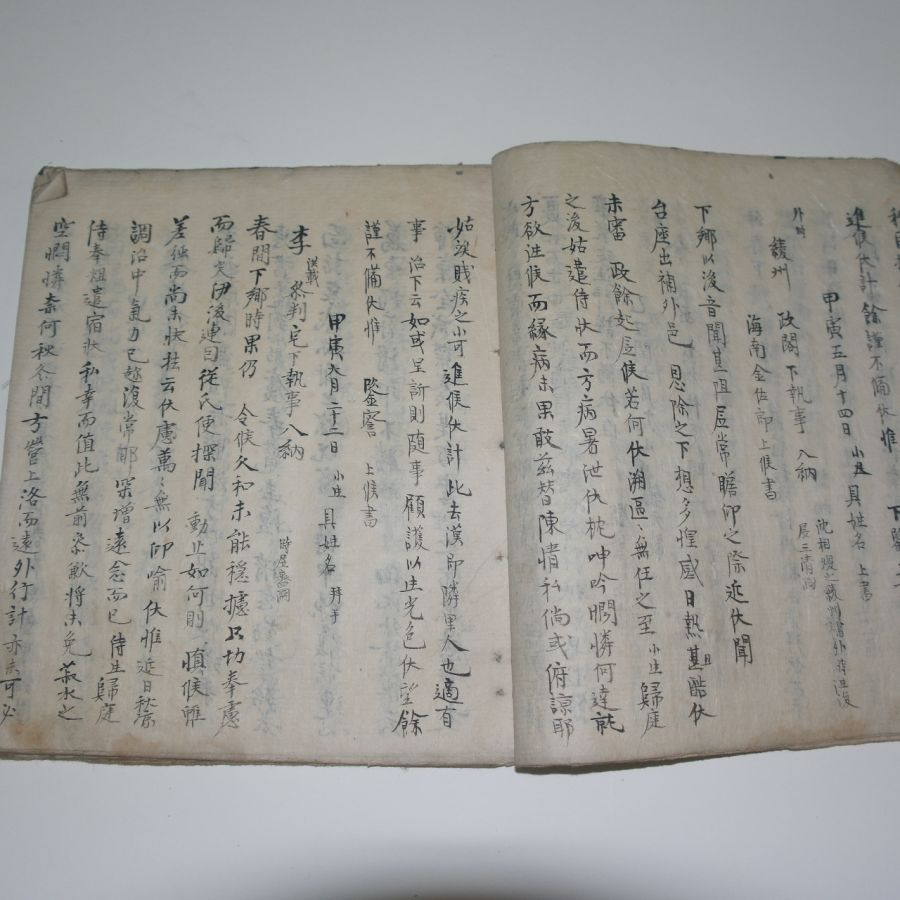 進候伏計餘謹不備伏惟 下
甲寅五月十四日 小生具姓名 上書
綾州 政閣下執事 入納
海南金佐郎上候書
下鄉以後音聞甚阻居常瞻仰之際近伏聞
台座出補外邑 恩除之下想多惶感日熱甚酷伏
未審 政餘起居候若何伏溯區〻無任之至 小生歸庭
之後姑遣侍狀而方病暑泄伏枕呻吟憫憐何達就
方欲進候而緣病未果敢茲替陳情私倘或俯諒耶
姑俟賤疾之小可進候伏計此去漢即隣里人也適有
事 治下云如或呈訴則隨事顧護以生光色伏望餘
謹不備伏惟 鑒詧 上候書
甲寅六月二十二日 小生 具姓名 拜手
李 參判宅下執事入納
春間下鄉時果仍 令候欠和未能穩攄只切奉慮
而歸矣伊後連自從氏便探聞 動止如何則 愼候雖
差經而尚未快祛云伏慮萬〻無以仰喻 伏惟近日秋
調治中氣力已趁復常耶 深增遠念而已 侍生歸庭
侍奉姑遣宿狀私幸而值此無前慘歉將未免 菽水之
空憫憐奈何秋冬間方營上洛而遠外行計亦未可必